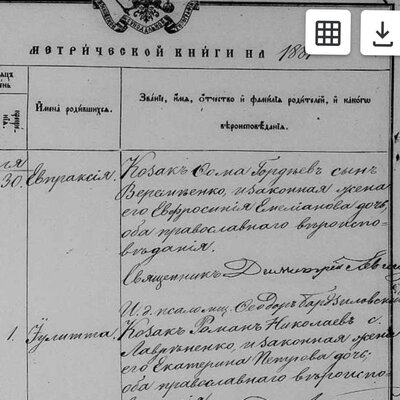 МЕТРИ́ЧЕСКОЙ КНИ́ГИ НА 188
Имена̀ роди́вшихся.
Зва́нїе, и́мя, о́тчество и̂ фами́лїя роди́телей, и̂ како́гѡ
вѣроисповѣ́данїя.
30. Евпраксія.
Козакъ Ѳома Гордѣевъ сынъ
Веремѣенко, и законная жена
его Евфросинія Емеліанова дочь,
оба православнаго вѣроиспо-
вѣданія.
Священникъ Димитрій
И. д. псаломщ. Ѳеодоръ
1. Іулитта.
Козакъ Романъ Николаевъ с.
Лавриненко, и законная жена
его Екатерина Петрова дочь;
оба православнаго вѣроиспо-